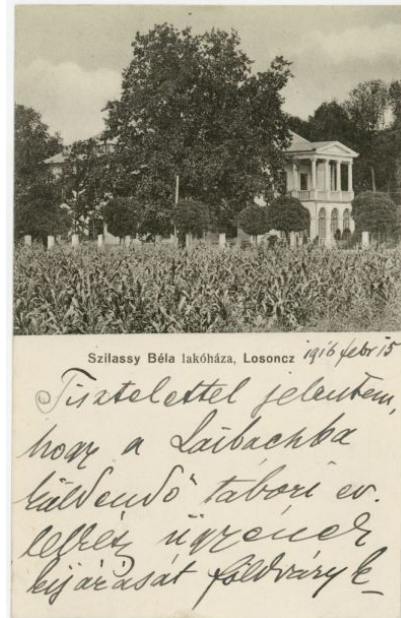 Szilassy Béla lakóháza, Losoncz 1916 febr 15
Tisztelettel jelentem,
hogy a Laibachba
küldendő tábori ev.
lelkész ügyének
kijárását földváry k